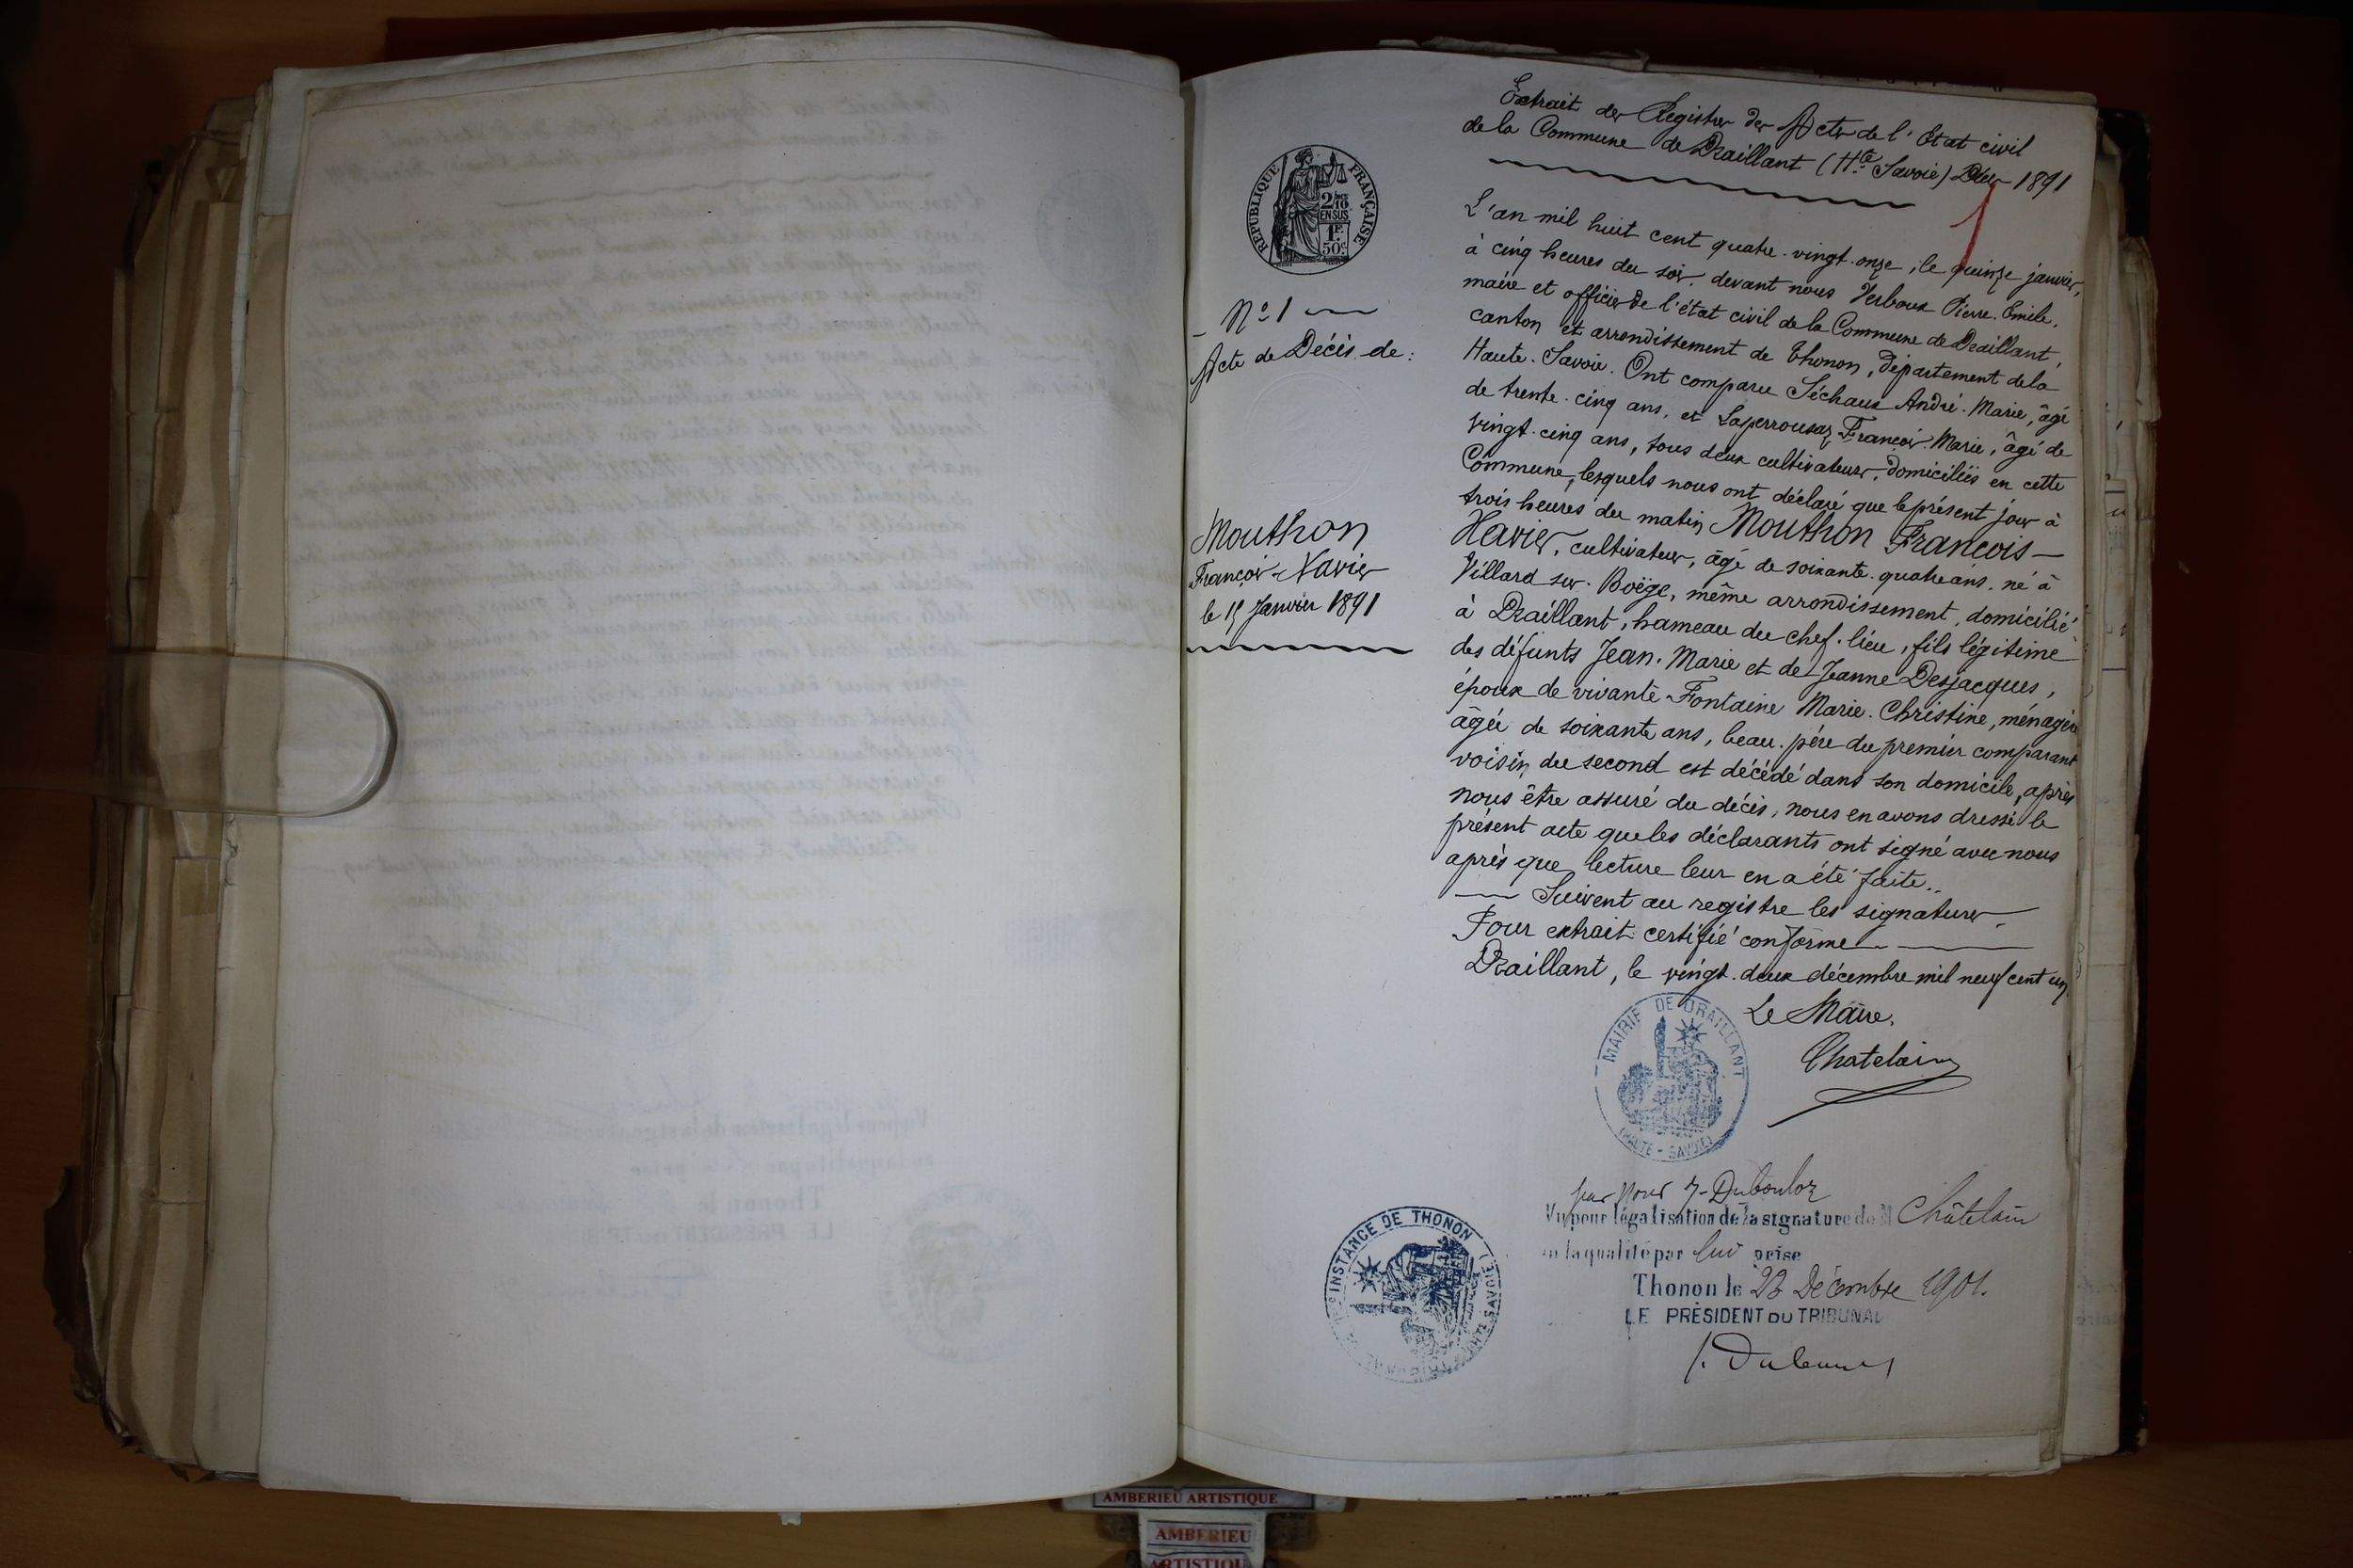 Extrait des Registres des Actes de l'Etat civil
de la Commune de Draillant (Hte Savoie) Décès 1891
1
RÉPUBLIQUE FRANÇAISE
2/10 EN SUS
1F. 50c.
L'an mil huit cent quatre-vingt-onze, le quinze janvier,
à cinq heures du soir, devant nous Verboux Pierre-Emile,
maire et officier de l'état civil de la Commune de Draillant,
canton et arrondissement de Thonon, département de la
Haute-Savoie. Ont comparu Séchaux André-Marie, âgé
de trente-cinq ans, et Laperrousaz François-Marie, âgé de
vingt-cinq ans, tous deux cultivateurs, domiciliés en cette
Commune, lesquels nous ont déclaré que le présent jour à
trois heures du matin Mouthon François-
Xavier, cultivateur, âgé de soixante-quatre ans, né à
Villard sur-Boëge, même arrondissement, domicilié
à Draillant, hameau du chef-lieu, fils légitime
des défunts Jean-Marie et de Jeanne Desjacques,
époux de vivante Fontaine Marie-Christine, ménagère
âgée de soixante ans, beau-père du premier comparant
voisin du second est décédé dans son domicile, après
nous être assuré du décès, nous en avons dressé le
présent acte que les déclarants ont signé avec nous
après que lecture leur en a été faite..
Suivent au registre les signatures
Pour extrait certifié conforme
Draillant, le vingt-deux décembre mil neuf cent un
Le Maire,
Chatelain
No 1
Acte de Décès de:
Mouthon
François-Xavier
le 15 Janvier 1891
MAIRIE DE DRAILLANT
(HAUTE-SAVOIE)
par Nous J. Dubouloz
Vu pour légalisation de la signature de M Châtelain
en la qualité par lui prise
Thonon le 23 Décembre 1901.
LE PRÉSIDENT DU TRIBUNAL
INSTANCE DE THONON (HAUTE SAVOIE)
AMBERIEU ARTISTIQUE
AMBERIEU
ARTISTIQUE